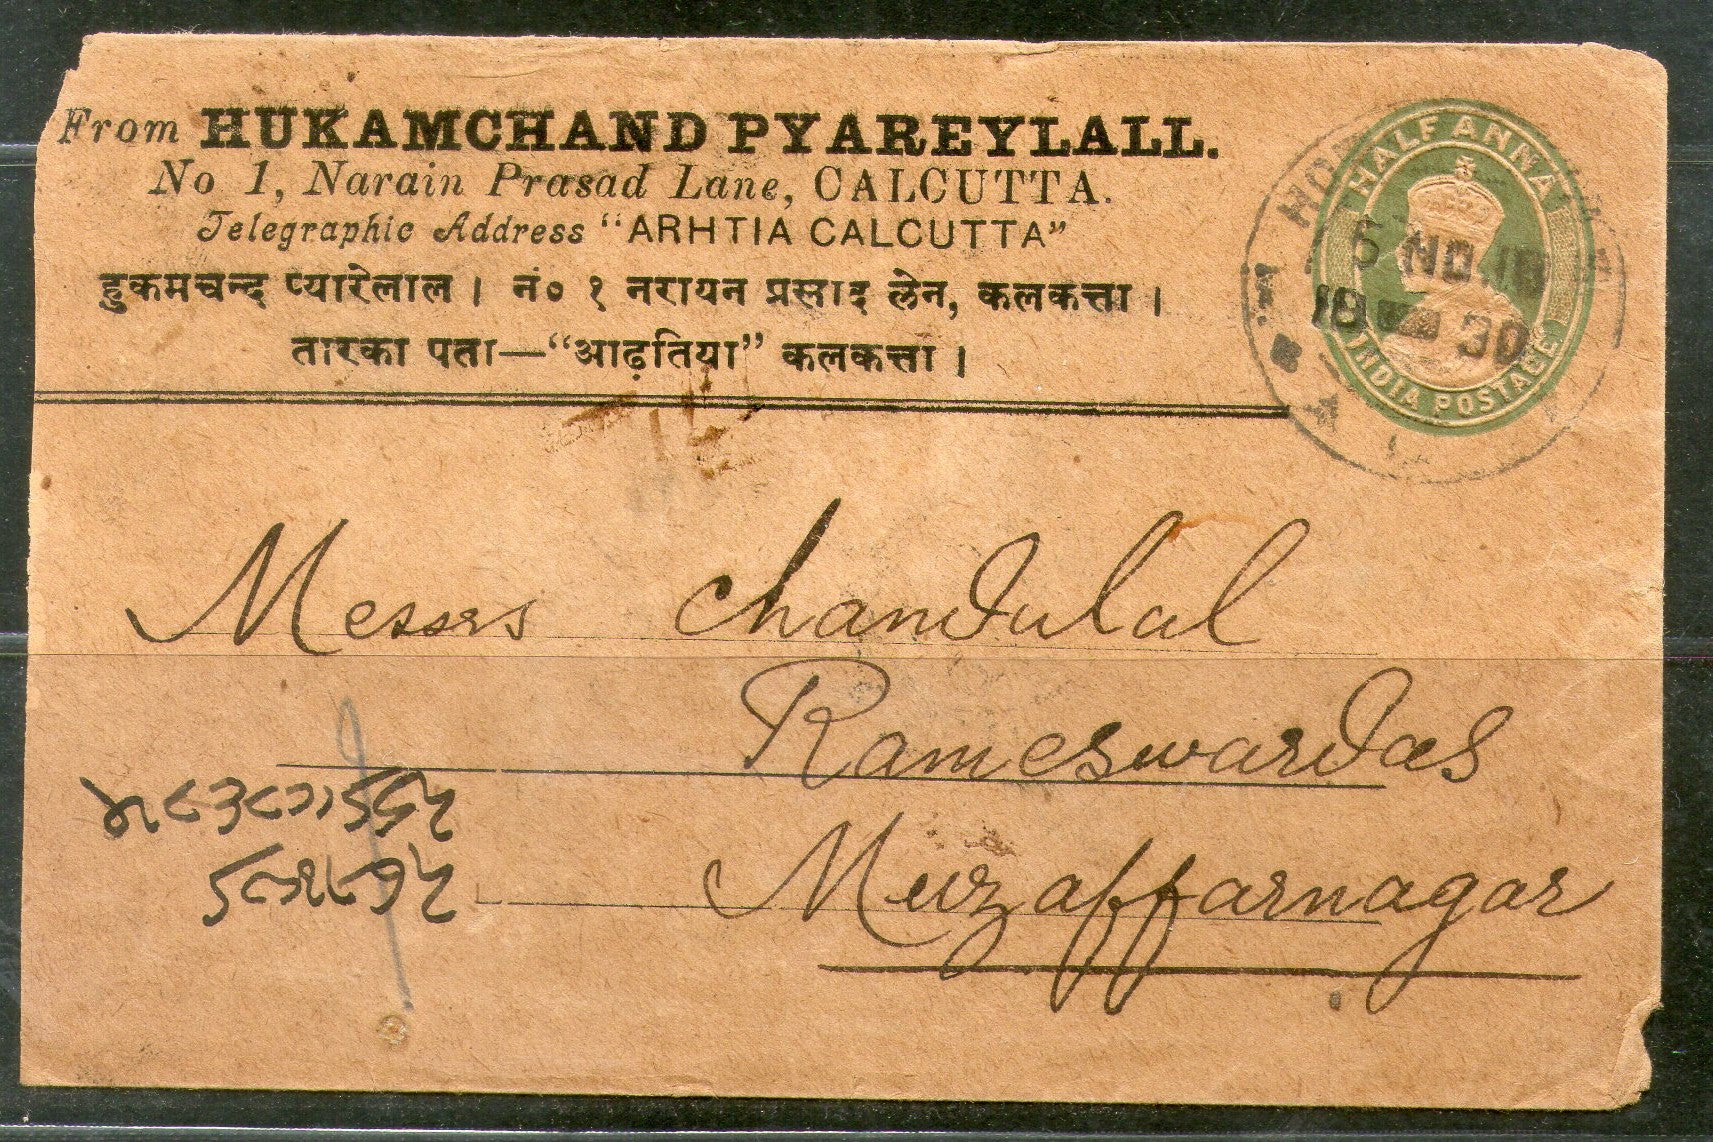 From HUKAMCHAND PYAREYLALL.
No 1, Narain Prasad Lane, CALCUTTA.
Telegraphic Address "ARHTIA CALCUTTA"
हुकमचन्द प्यारेलाल । नं० १ नरायन प्रसाद लेन, कलकत्ता ।
तारका पता—"आढ़तिया" कलकत्ता ।
HALF ANNA
5 NO. 18
18 30
INDIA POSTAGE
Messrs Chandulal
Rameswardas
Muzaffarnagar